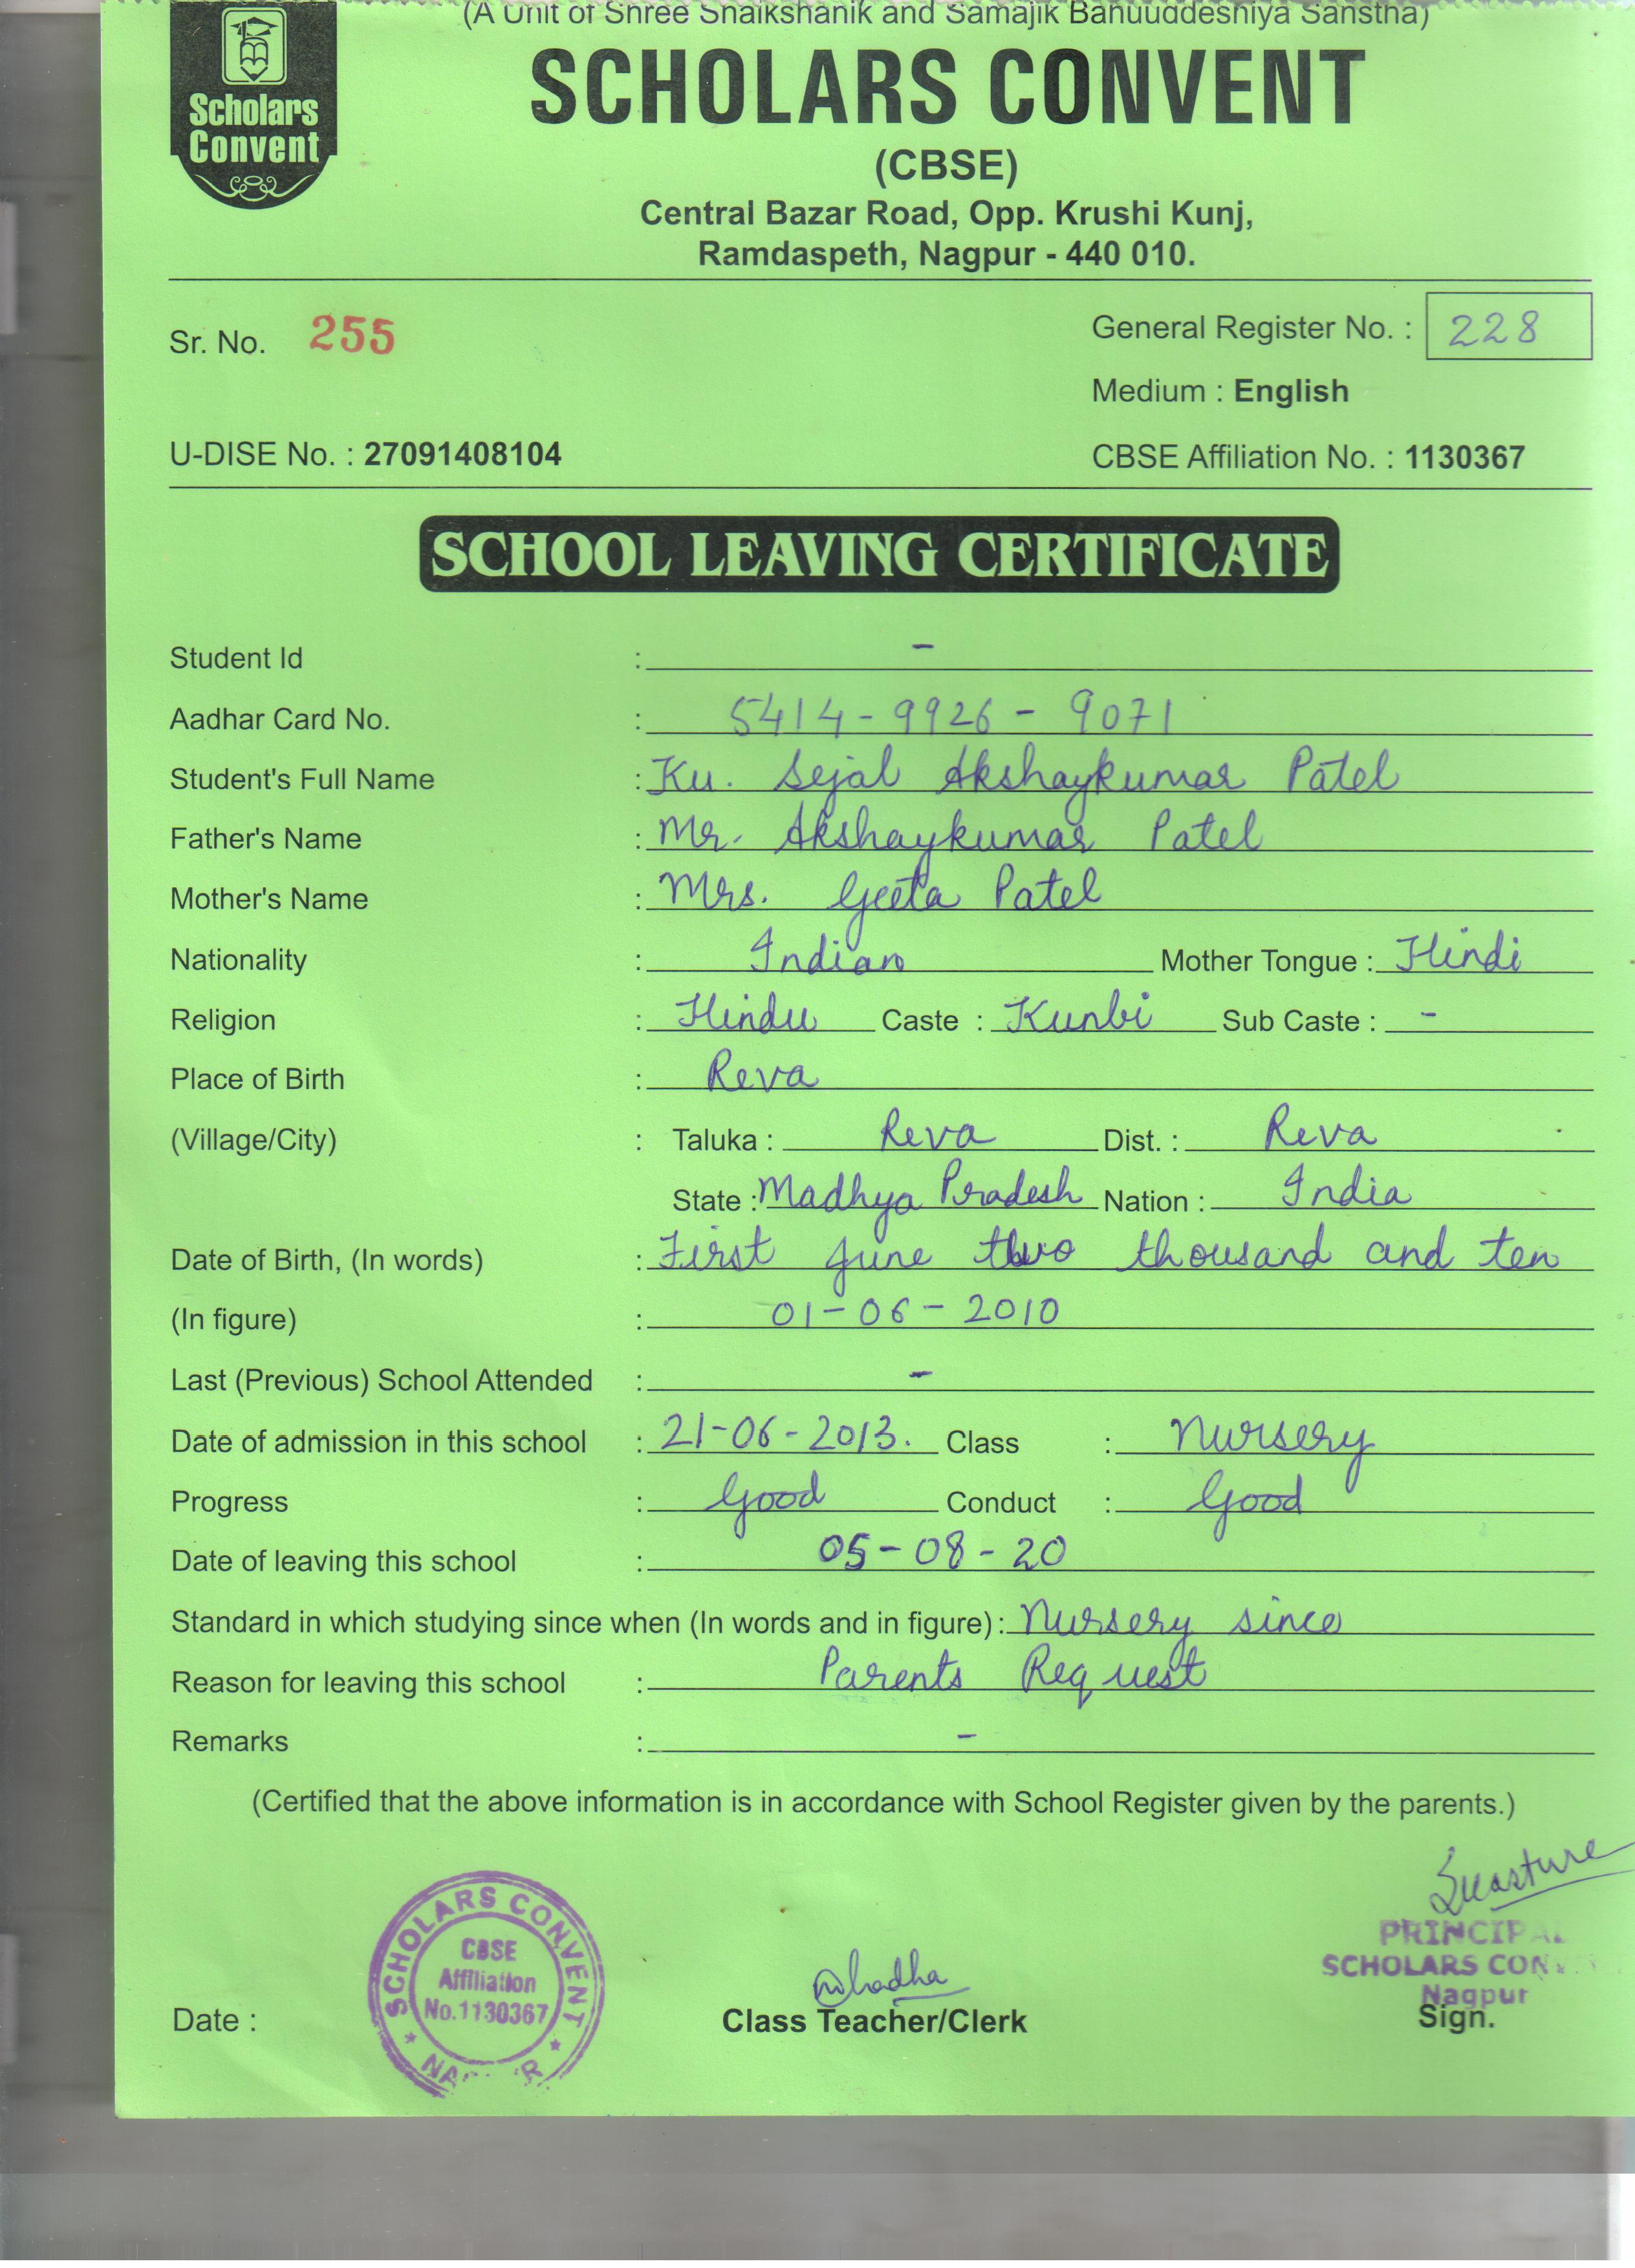 (A Unit of Shree Shaikshanik and Samajik Bahuuddeshiya Sanstha)
Scholars
Convent
SCHOLARS CONVENT
(CBSE)
Central Bazar Road, Opp. Krushi Kunj,
Ramdaspeth, Nagpur - 440 010.
Sr. No. 255 General Register No. : 228
Medium : English
U-DISE No. : 27091408104 CBSE Affiliation No. : 1130367
SCHOOL LEAVING CERTIFICATE
Student Id : -
Aadhar Card No. : 5414-9926-9071
Student's Full Name : Ku. Sejal Akshaykumar Patel
Father's Name : Mr. Akshaykumar Patel
Mother's Name : Mrs. Geeta Patel
Nationality : Indian Mother Tongue : Hindi
Religion : Hindu Caste : Kunbi Sub Caste : -
Place of Birth : Reva
(Village/City) : Taluka : Reva Dist. : Reva
State : Madhya Pradesh Nation : India
Date of Birth, (In words) : First June two thousand and ten
(In figure) : 01-06-2010
Last (Previous) School Attended : -
Date of admission in this school : 21-06-2013. Class : Nursery
Progress : Good Conduct : Good
Date of leaving this school : 05-08-20
Standard in which studying since when (In words and in figure) : Nursery since
Reason for leaving this school : Parents Request
Remarks : -
(Certified that the above information is in accordance with School Register given by the parents.)
SCHOLARS CONVENT
CBSE
Affiliation
No.1130367
PRINCIPAL
SCHOLARS CON
Nagpur
Date : Class Teacher/Clerk Sign.